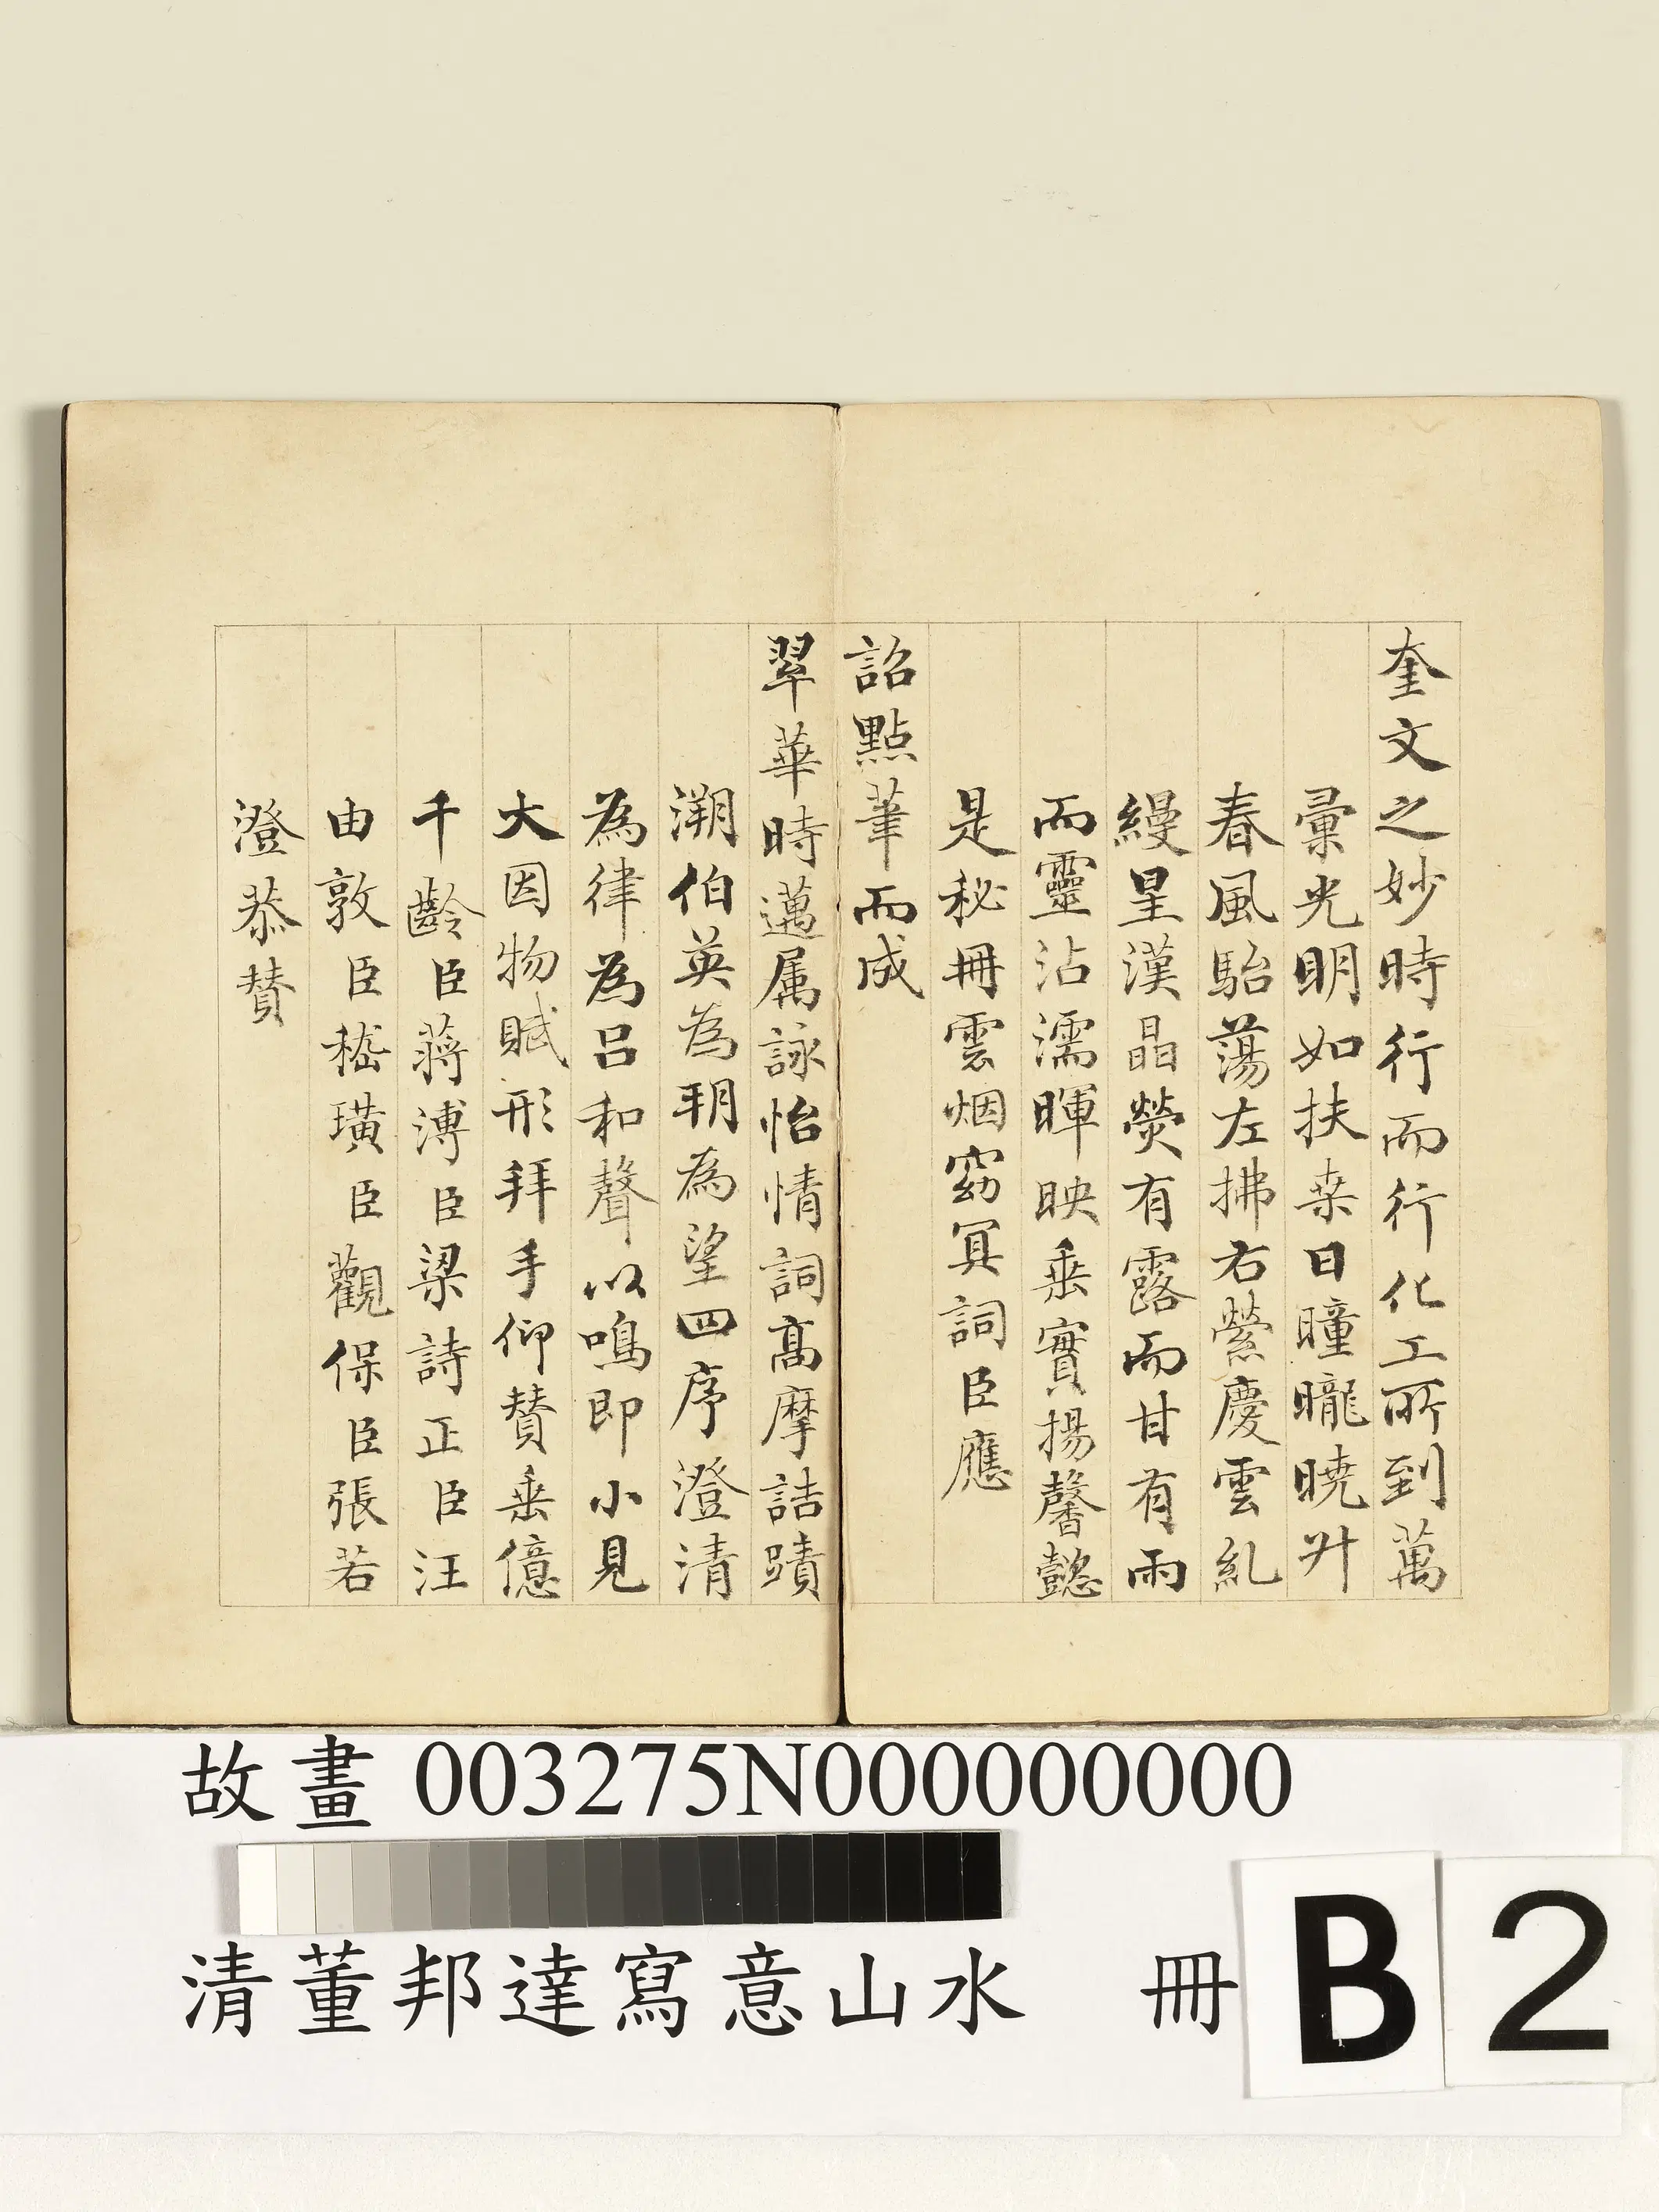 奎文之妙時行而行化工所到萬
彙光明如扶桒日曈曨曉升
春風駘蕩左拂右縈慶雲糺
縵星漢晶熒有露而甘有雨
而靈沾濡暉映垂實揚馨懿
是秘冊雲烟窈冥詞臣應
詔點筆而成
翠華時邁属詠怡情詞高摩詰蹟
溯伯英為明為望四序澄清
為律為呂和聲以鳴即小見
大因物賦形拜手仰贊垂億
千齡臣蔣溥臣梁詩正臣汪
由敦臣嵇璜臣觀保臣張若
澄恭贊
故畫 003275N000000000
清董邦達寫意山水 冊
B 2